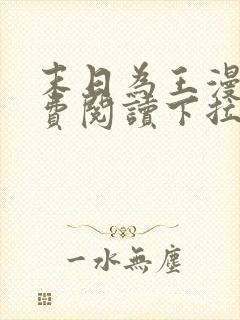 末日為王漫
費閱讀下拉
一水無塵